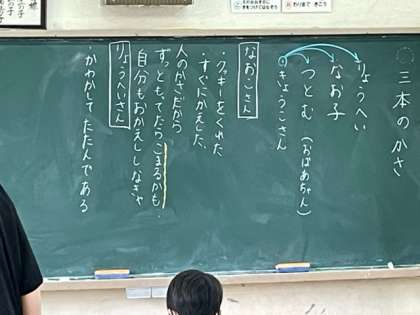 三本のかさ
りょうへい
なお子
つとむ（おばあちゃん）
きょうこさん
なおこさん
・クッキーをくれた
・すぐにかえした、
人のかさだから
ずっともってたらこまるかも、
自分もおかえししなきゃ
りょうへいさん
・かわかしてたたんである